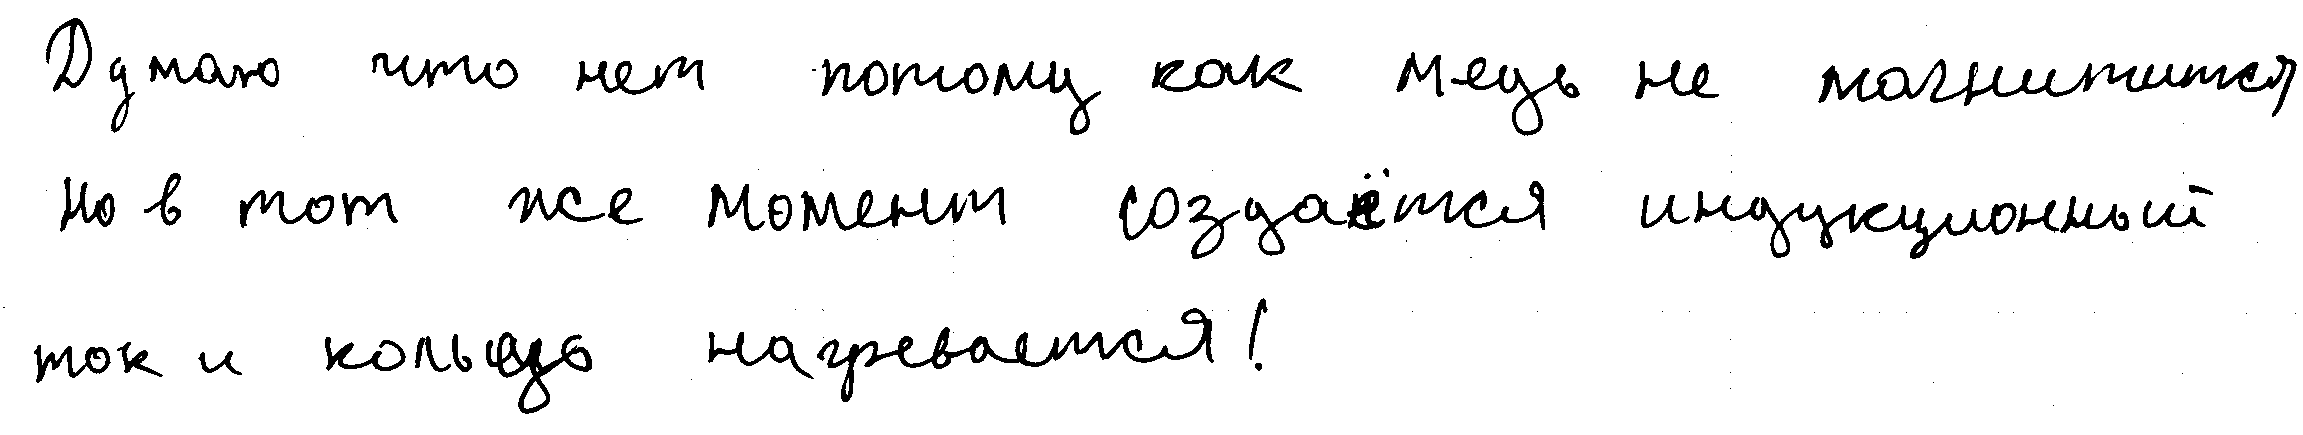 Думаю что нет потому как медь не магнитится
Но в тот же момент создаётся индукционный
ток и кольцо нагревается!